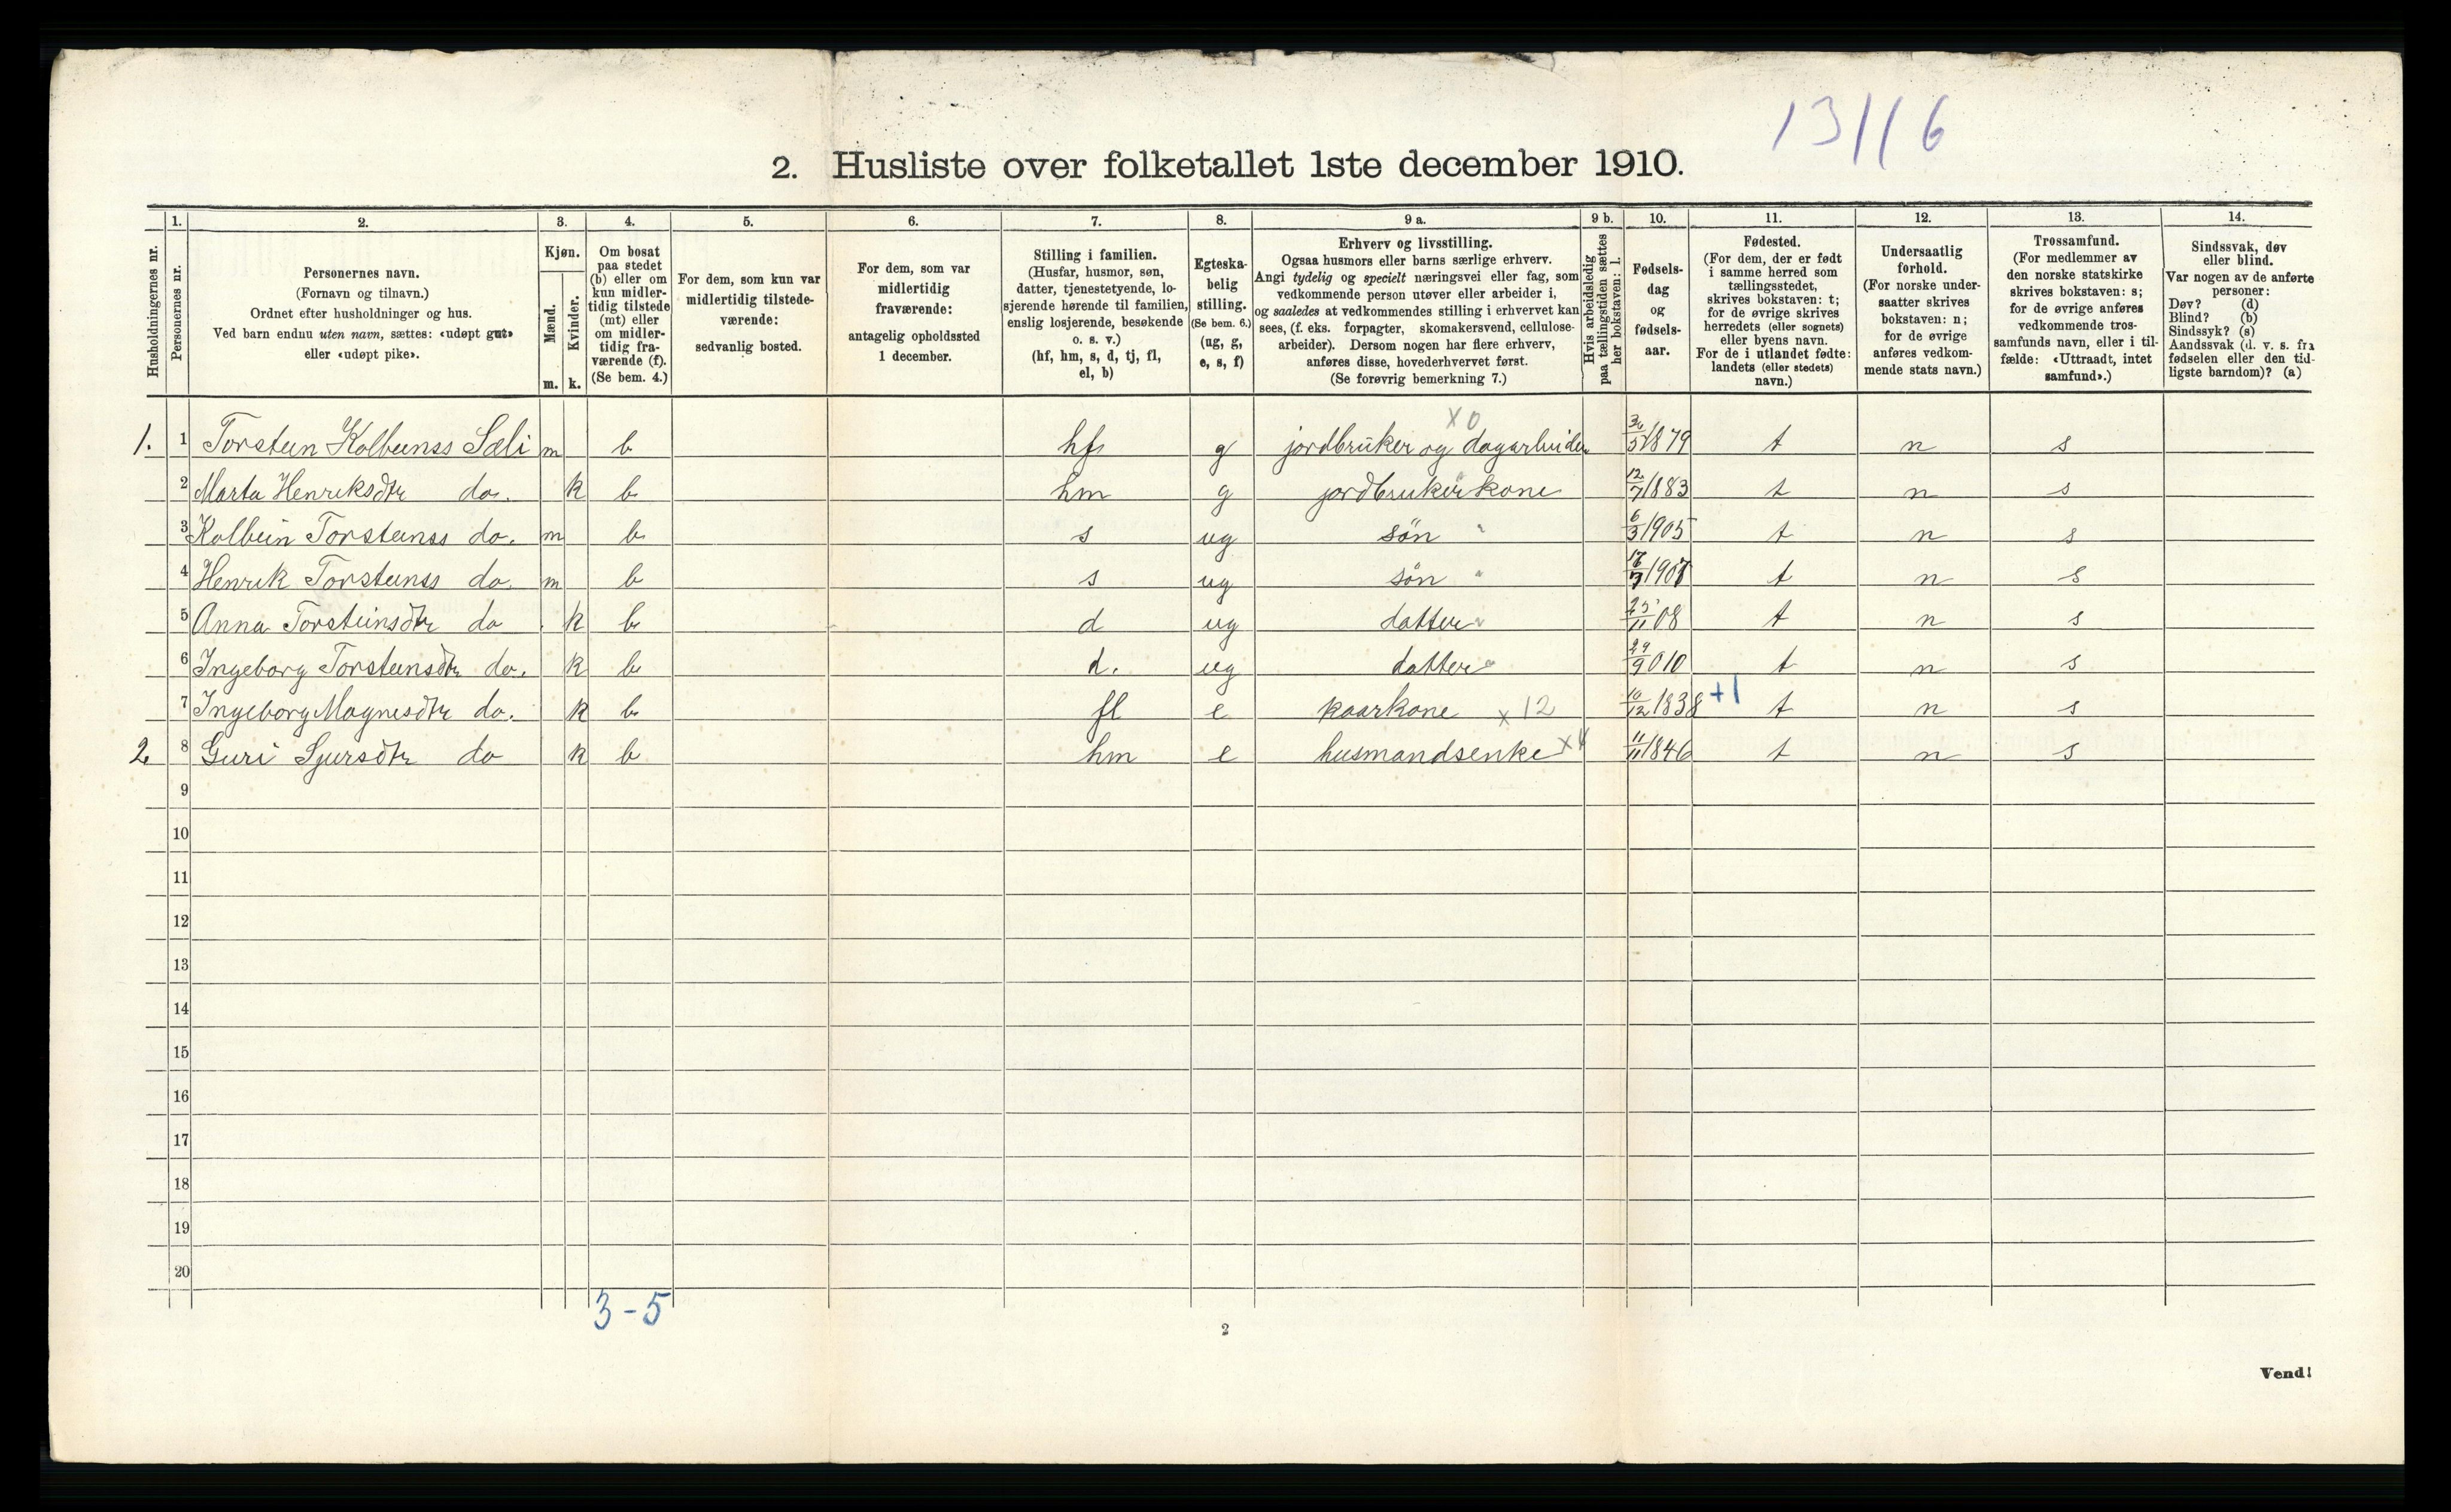 13116
2. Husliste over folketallet 1ste december 1910.
1. 2. 3. 4. 5. 6. 7. 8. 9 a. 9 b. 10. 11. 12. 13. 14.
Husholdningernes nr.
Personernes nr.
Personernes navn.
(Fornavn og tilnavn.)
Ordnet efter husholdninger og hus.
Ved barn endnu uten navn, sættes: «udøpt gut»
eller «udøpt pike».
Kjøn.
Mænd.
Kvinder.
m. k.
Om bosat
paa stedet
(b) eller om
kun midler-
tidig tilstede
(mt) eller
om midler-
tidig fra-
værende (f).
(Se bem. 4.)
For dem, som kun var
midlertidig tilstede-
værende:
sedvanlig bosted.
For dem, som var
midlertidig
fraværende:
antagelig opholdssted
1 december.
Stilling i familien.
(Husfar, husmor, søn,
datter, tjenestetyende, lo-
sjerende hørende til familien,
enslig losjerende, besøkende
o. s. v.)
(hf, hm, s, d, tj, fl,
el, b)
Egteska-
belig
stilling.
(Se bem. 6.)
(ug, g,
e, s, f)
Erhverv og livsstilling.
Ogsaa husmors eller barns særlige erhverv.
Angi tydelig og specielt næringsvei eller fag, som
vedkommende person utøver eller arbeider i,
og saaledes at vedkommendes stilling i erhvervet kan
sees, (f. eks. forpagter, skomakersvend, cellulose-
arbeider). Dersom nogen har flere erhverv,
anføres disse, hovederhvervet først.
(Se forøvrig bemerkning 7.)
Hvis arbeidsledig
paa tællingstiden sættes
her bokstaven: l.
Fødsels-
dag
og
fødsels-
aar.
Fødested.
(For dem, der er født
i samme herred som
tællingsstedet,
skrives bokstaven: t;
for de øvrige skrives
herredets (eller sognets)
eller byens navn.
For de i utlandet fødte:
landets (eller stedets)
navn.)
Undersaatlig
forhold.
(For norske under-
saatter skrives
bokstaven: n;
for de øvrige
anføres vedkom-
mende stats navn.)
Trossamfund.
(For medlemmer av
den norske statskirke
skrives bokstaven: s;
for de øvrige anføres
vedkommende tros-
samfunds navn, eller i til-
fælde: «Uttraadt, intet
samfund».)
Sindssvak, døv
eller blind.
Var nogen av de anførte
personer:
Døv? (d)
Blind? (b)
Sindssyk? (s)
Aandssvak (d. v. s. fra
fødselen eller den tid-
ligste barndom)? (a)
X0
1. 1 Torstein Kolbeinss Sæli m b hf g jordbruker og dagarbeider 30/5 1879 t n s
2 Marta Henriksdtr do. k b hm g jordbruker kone 12/7 1883 t n s
3 Kolbein Torsteinss do. m b s ug søn " 6/3 1905 t n s
4 Henrik Torsteinss do. m b s ug søn " 1907 t n s
5 Anna Torsteinsdtr do k b d ug datter " 25/11 08 t n s
6 Ingeborg Torsteinsdtr do. k b d. ug datter " 29/9 010 t n s
7 Ingeborg Magnesdtr do. k b fl e kaarkone x 12 10/12 1838 +1 t n s
2. 8 Guri Sjursdtr do k b hm e husmandsenke 11/11 1846 t n s
9
10
11
12
13
14
15
16
17
18
19
20
3-5
2
Vend!